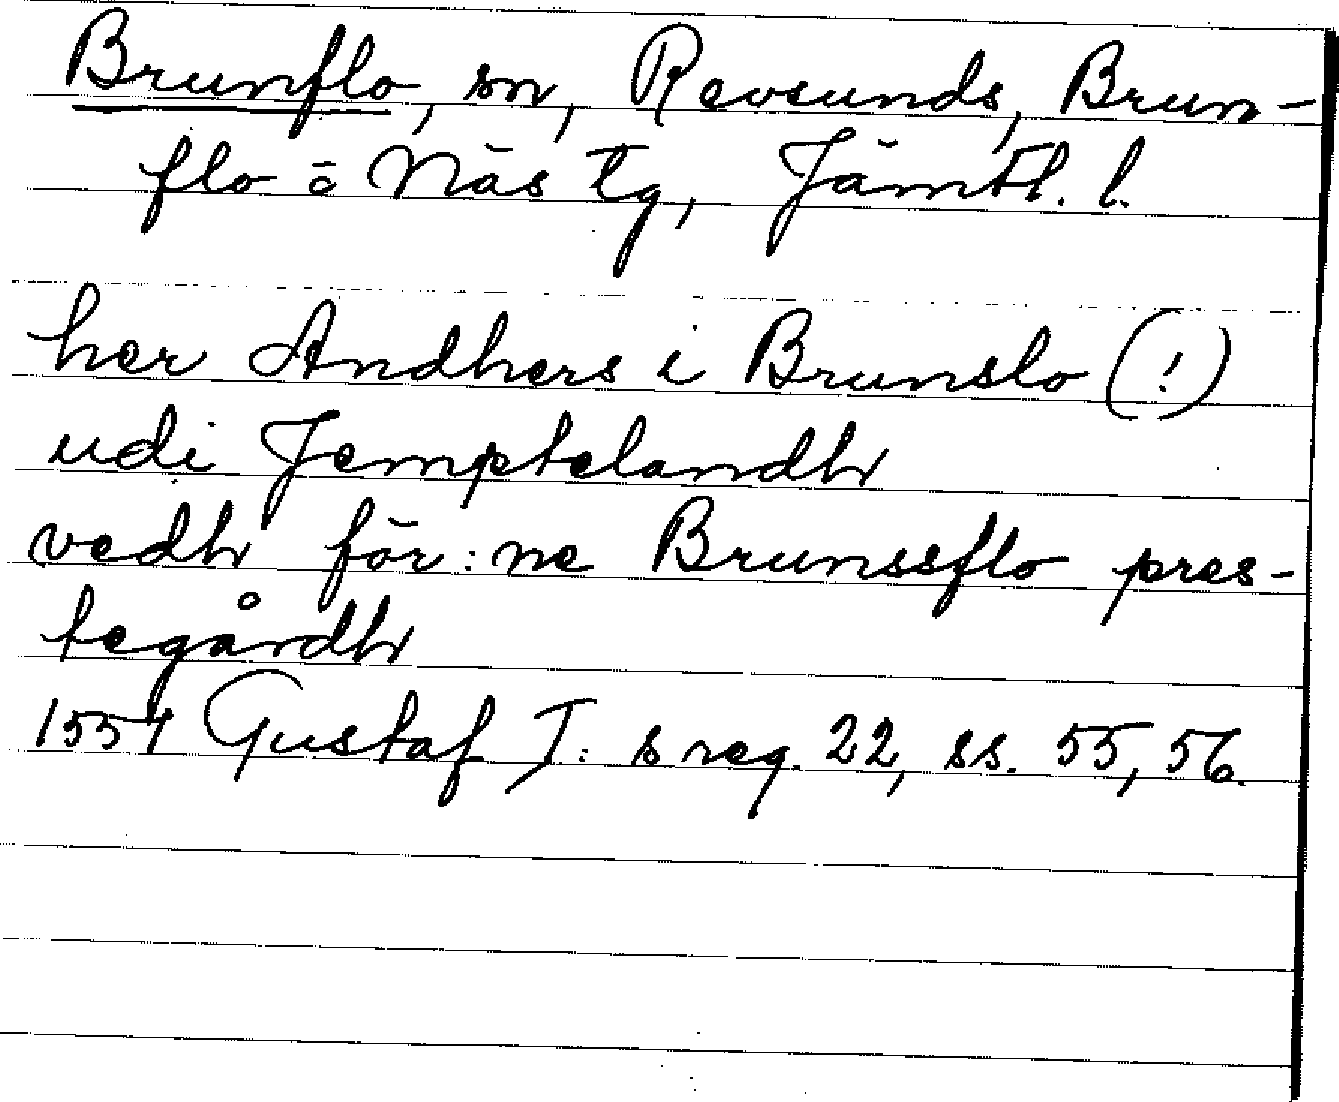 Brunflo, sn, Revsunds, Brun-
flo ō Näs tg, Jämtl. l.
her Andhers i Brunslo (!)
udi Jemptelandh
vedh för:ne Brunssflo pres-
tegårdh
1551 Gustaf I:s reg. 22, ss. 55, 56.